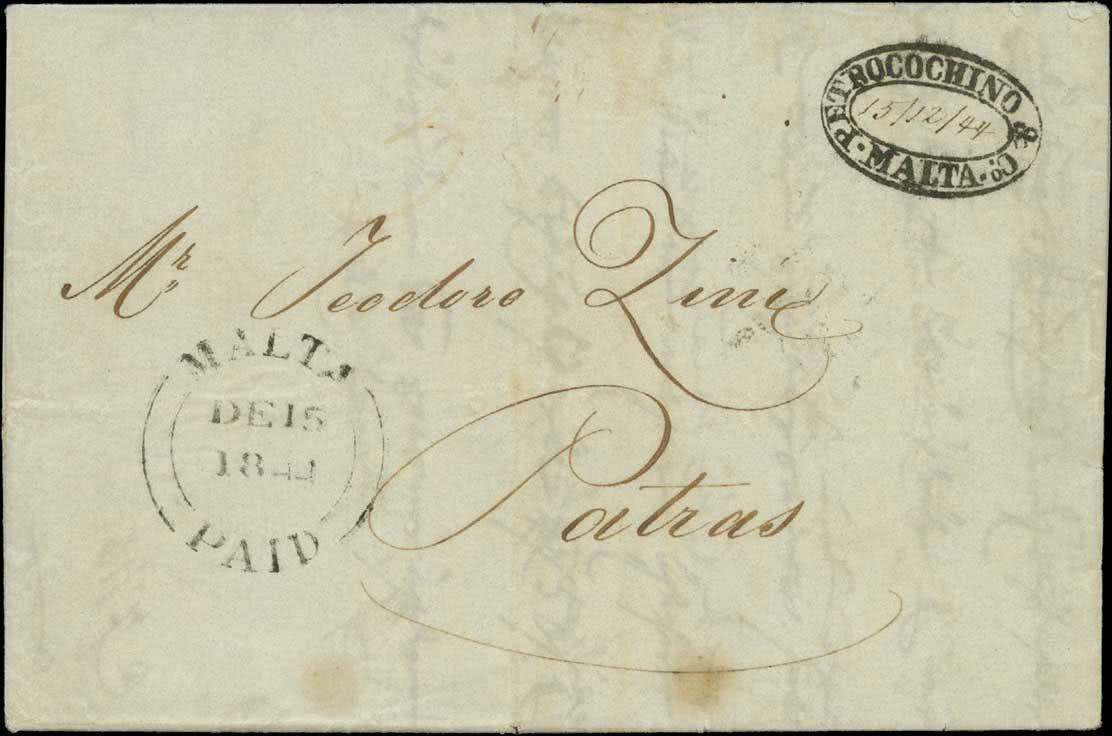 PETROCOCHINO & Co.
15/12/44
MALTA
Mr. Teodoro Zini
MALTA
DE 15
1844
PAID
Patras